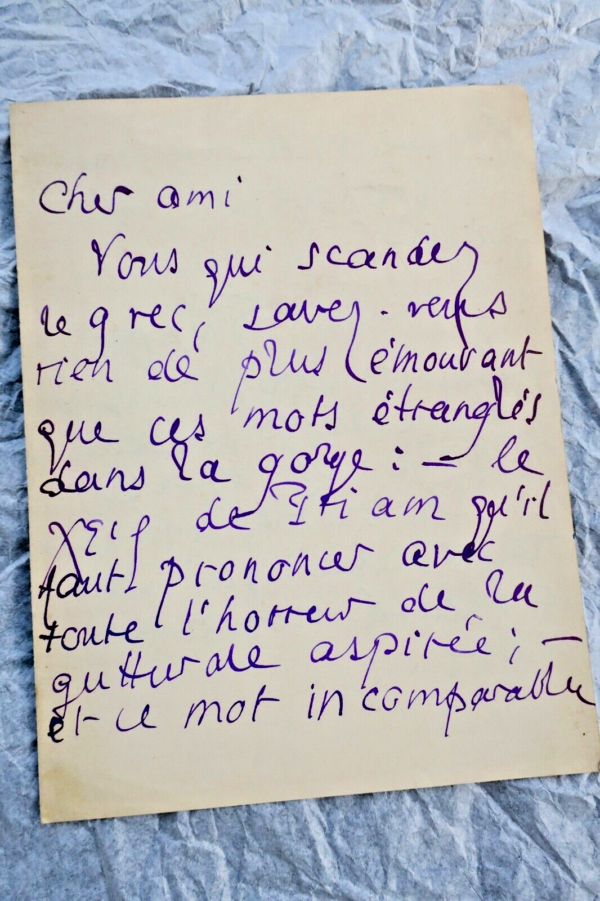 Cher ami
Vous qui scandez
le grec, savez-vous
rien de plus émouvant
que ces mots étranglés
dans la gorge : — le
χείρ de Priam qu'il
faut prononcer avec
toute l'horreur de la
gutturale aspirée ; —
et ce mot incomparable